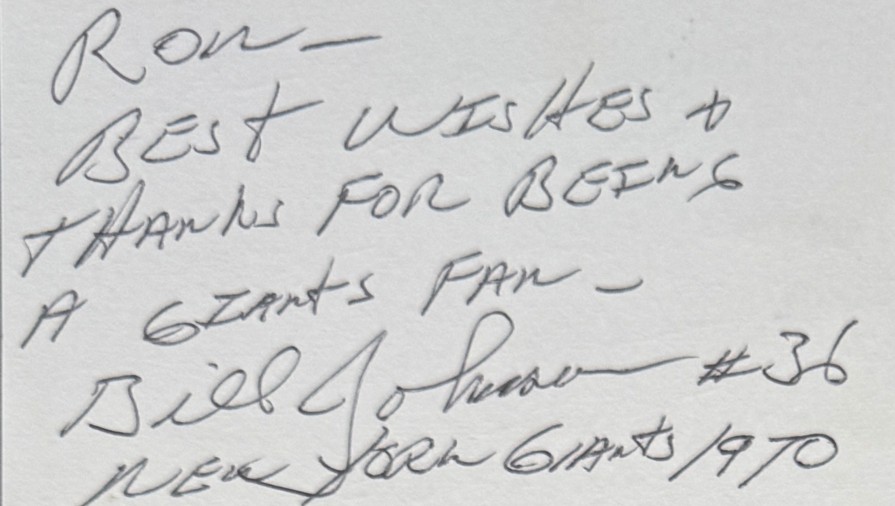 RON —
BEST WISHES +
THANKS FOR BEING
A GIANTS FAN —
Bill Johnson #36
NEW YORK GIANTS 1970